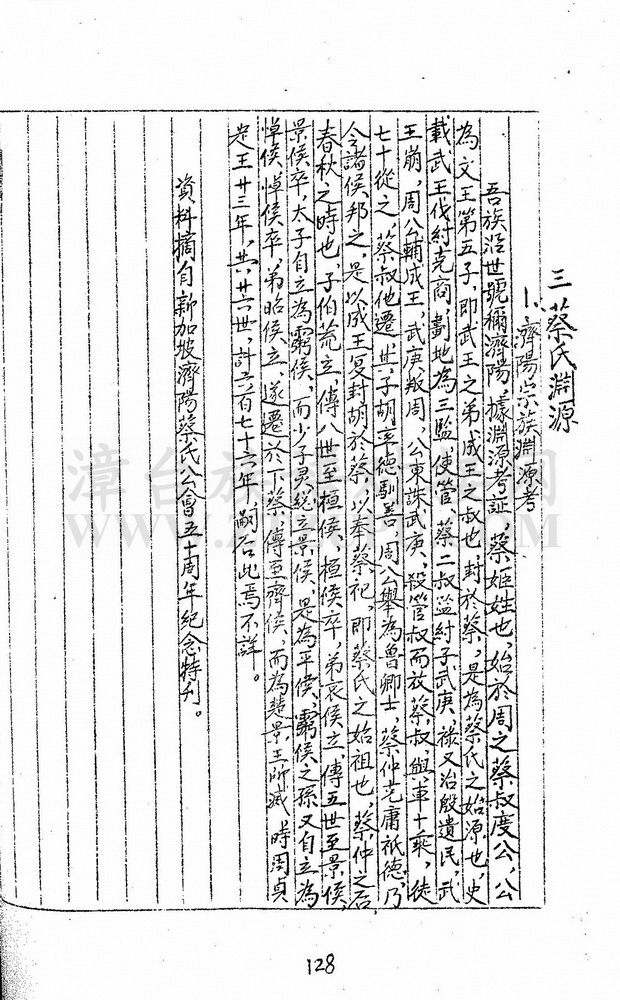 三 蔡氏淵源
1、濟陽宗族淵源考
吾族沿世號稱濟陽，樣淵源考証，蔡姬姓也，始於周之蔡叔度公，公
為文王第五子，即武王之弟成王之叔也，封於蔡，是為蔡氏之始源也，史
載武王伐紂克商，劃地為三監，使管、蔡二叔監紂子武庚，祿又治殷遺民，武
王崩，周公輔成王，武庚叛周，公東誅武庚，殺管叔而放蔡叔，與車十乘，徒
七十從之，蔡叔他遷，其子胡率德馴善，周公舉為魯卿士，蔡仲克庸祇德，乃
令諸侯邦之，是以成王复封胡於蔡，以奉蔡祀，即蔡氏之始祖也，蔡仲之后
春秋之時也，子伯荒立，傳八世至桓侯，桓侯卒，弟哀侯立，傳五世至景侯，
景侯卒，太子自立為靈侯，而少子灵緃立景侯，是為平侯，靈侯之孫又自立為
悼侯，悼侯卒，弟昭侯立，遂遷於下蔡，傳至齊侯，而為楚景王所滅，時周貞
定王廿三年，共廿六世，計六百七十六年，嗣后此焉不詳。
資料摘自新加坡濟陽蔡氏公會五十周年紀念特刊。
128